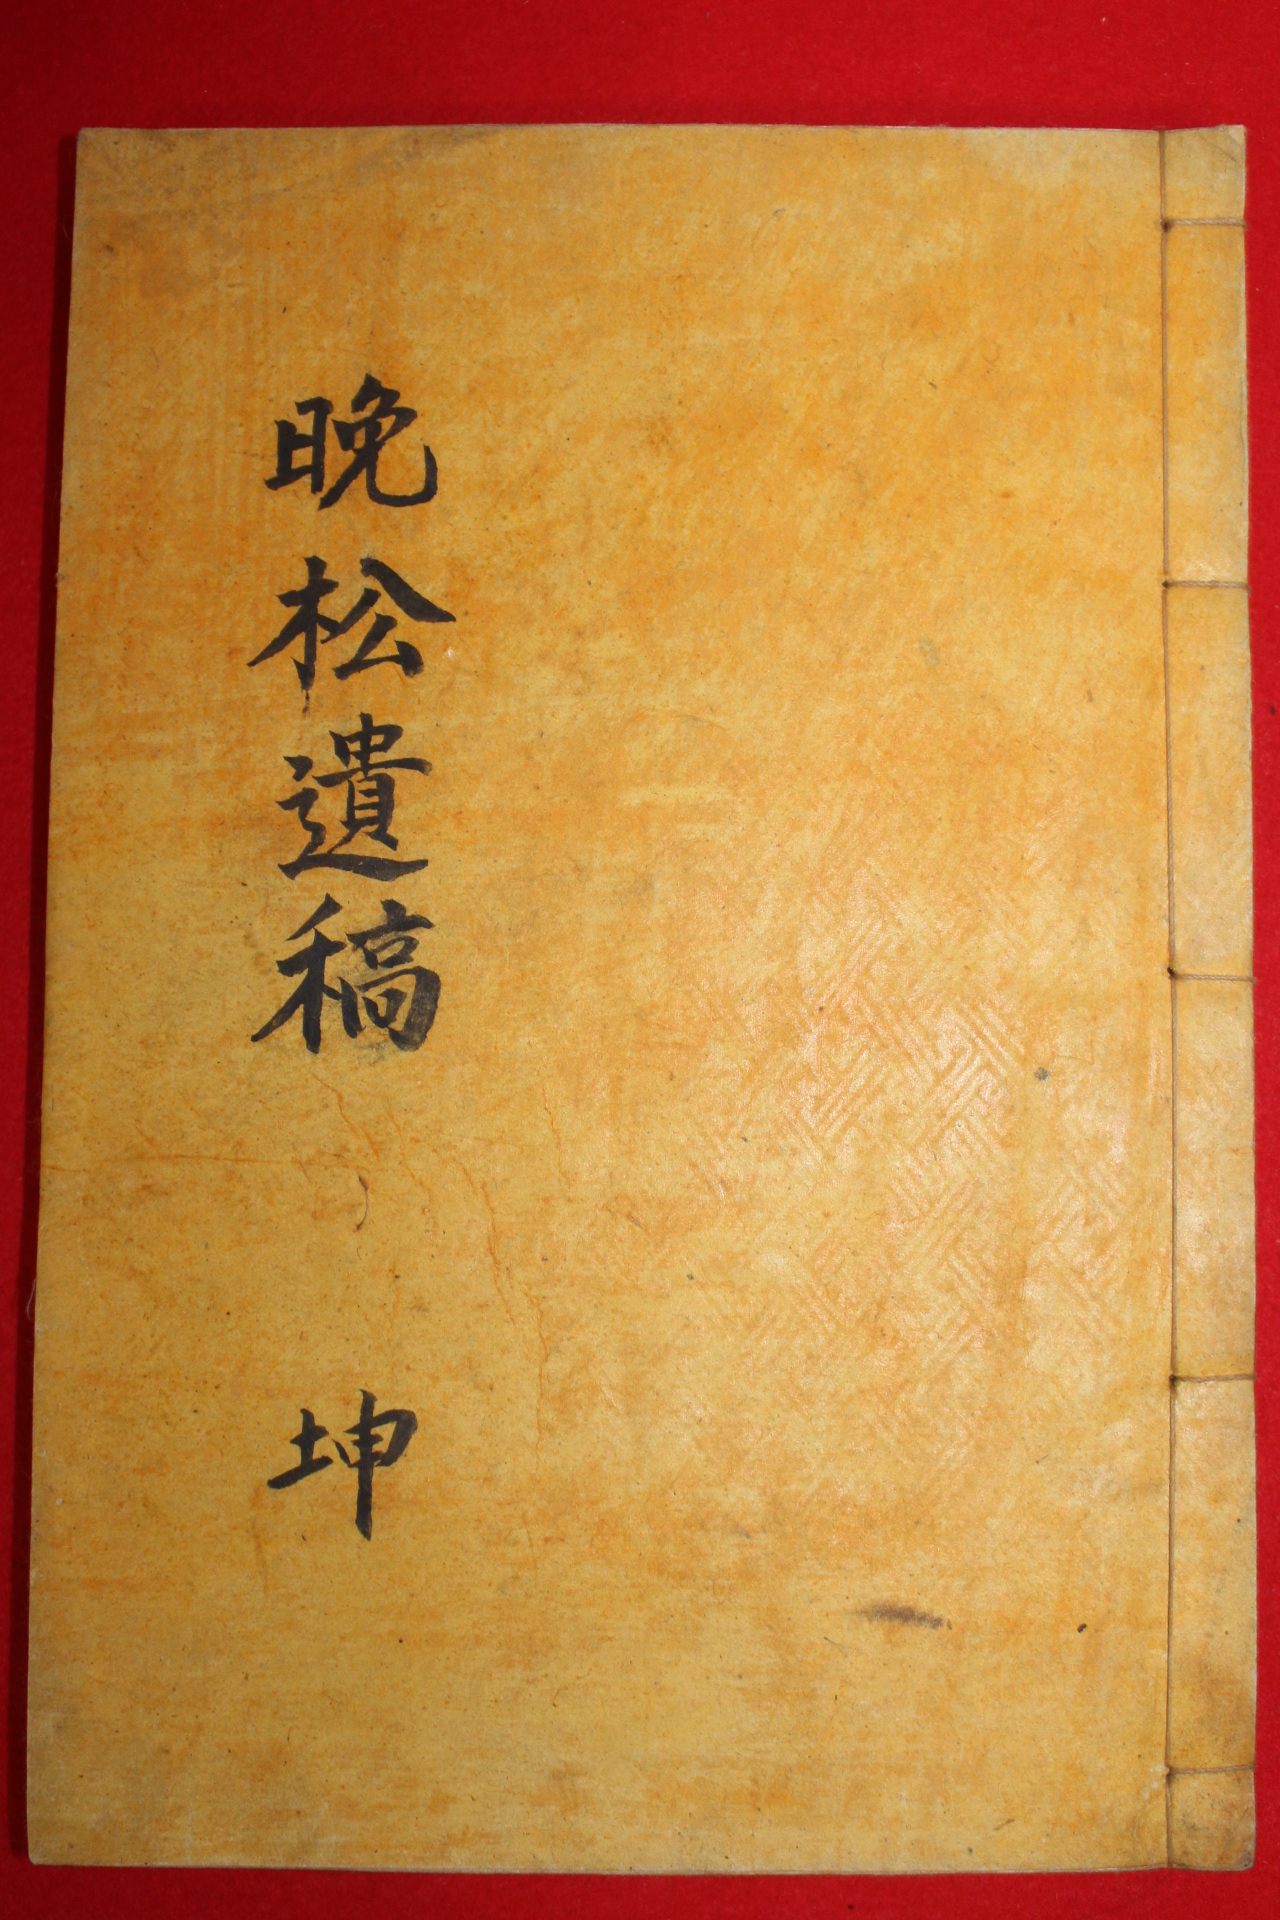 晩松遺稿
坤